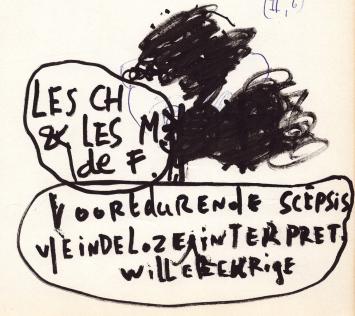 (II, 6)
LES CH
& LES M
de F.
VOORtdURENde SCEPSIS
v/EINDELOZE INTERPRET.
WILLEKEURIGE